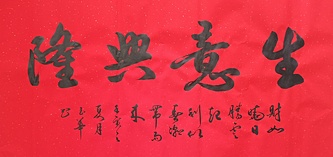 生意興隆
財如
曉日
騰雲
起
利似
春潮
帶雨
來
之
夏月